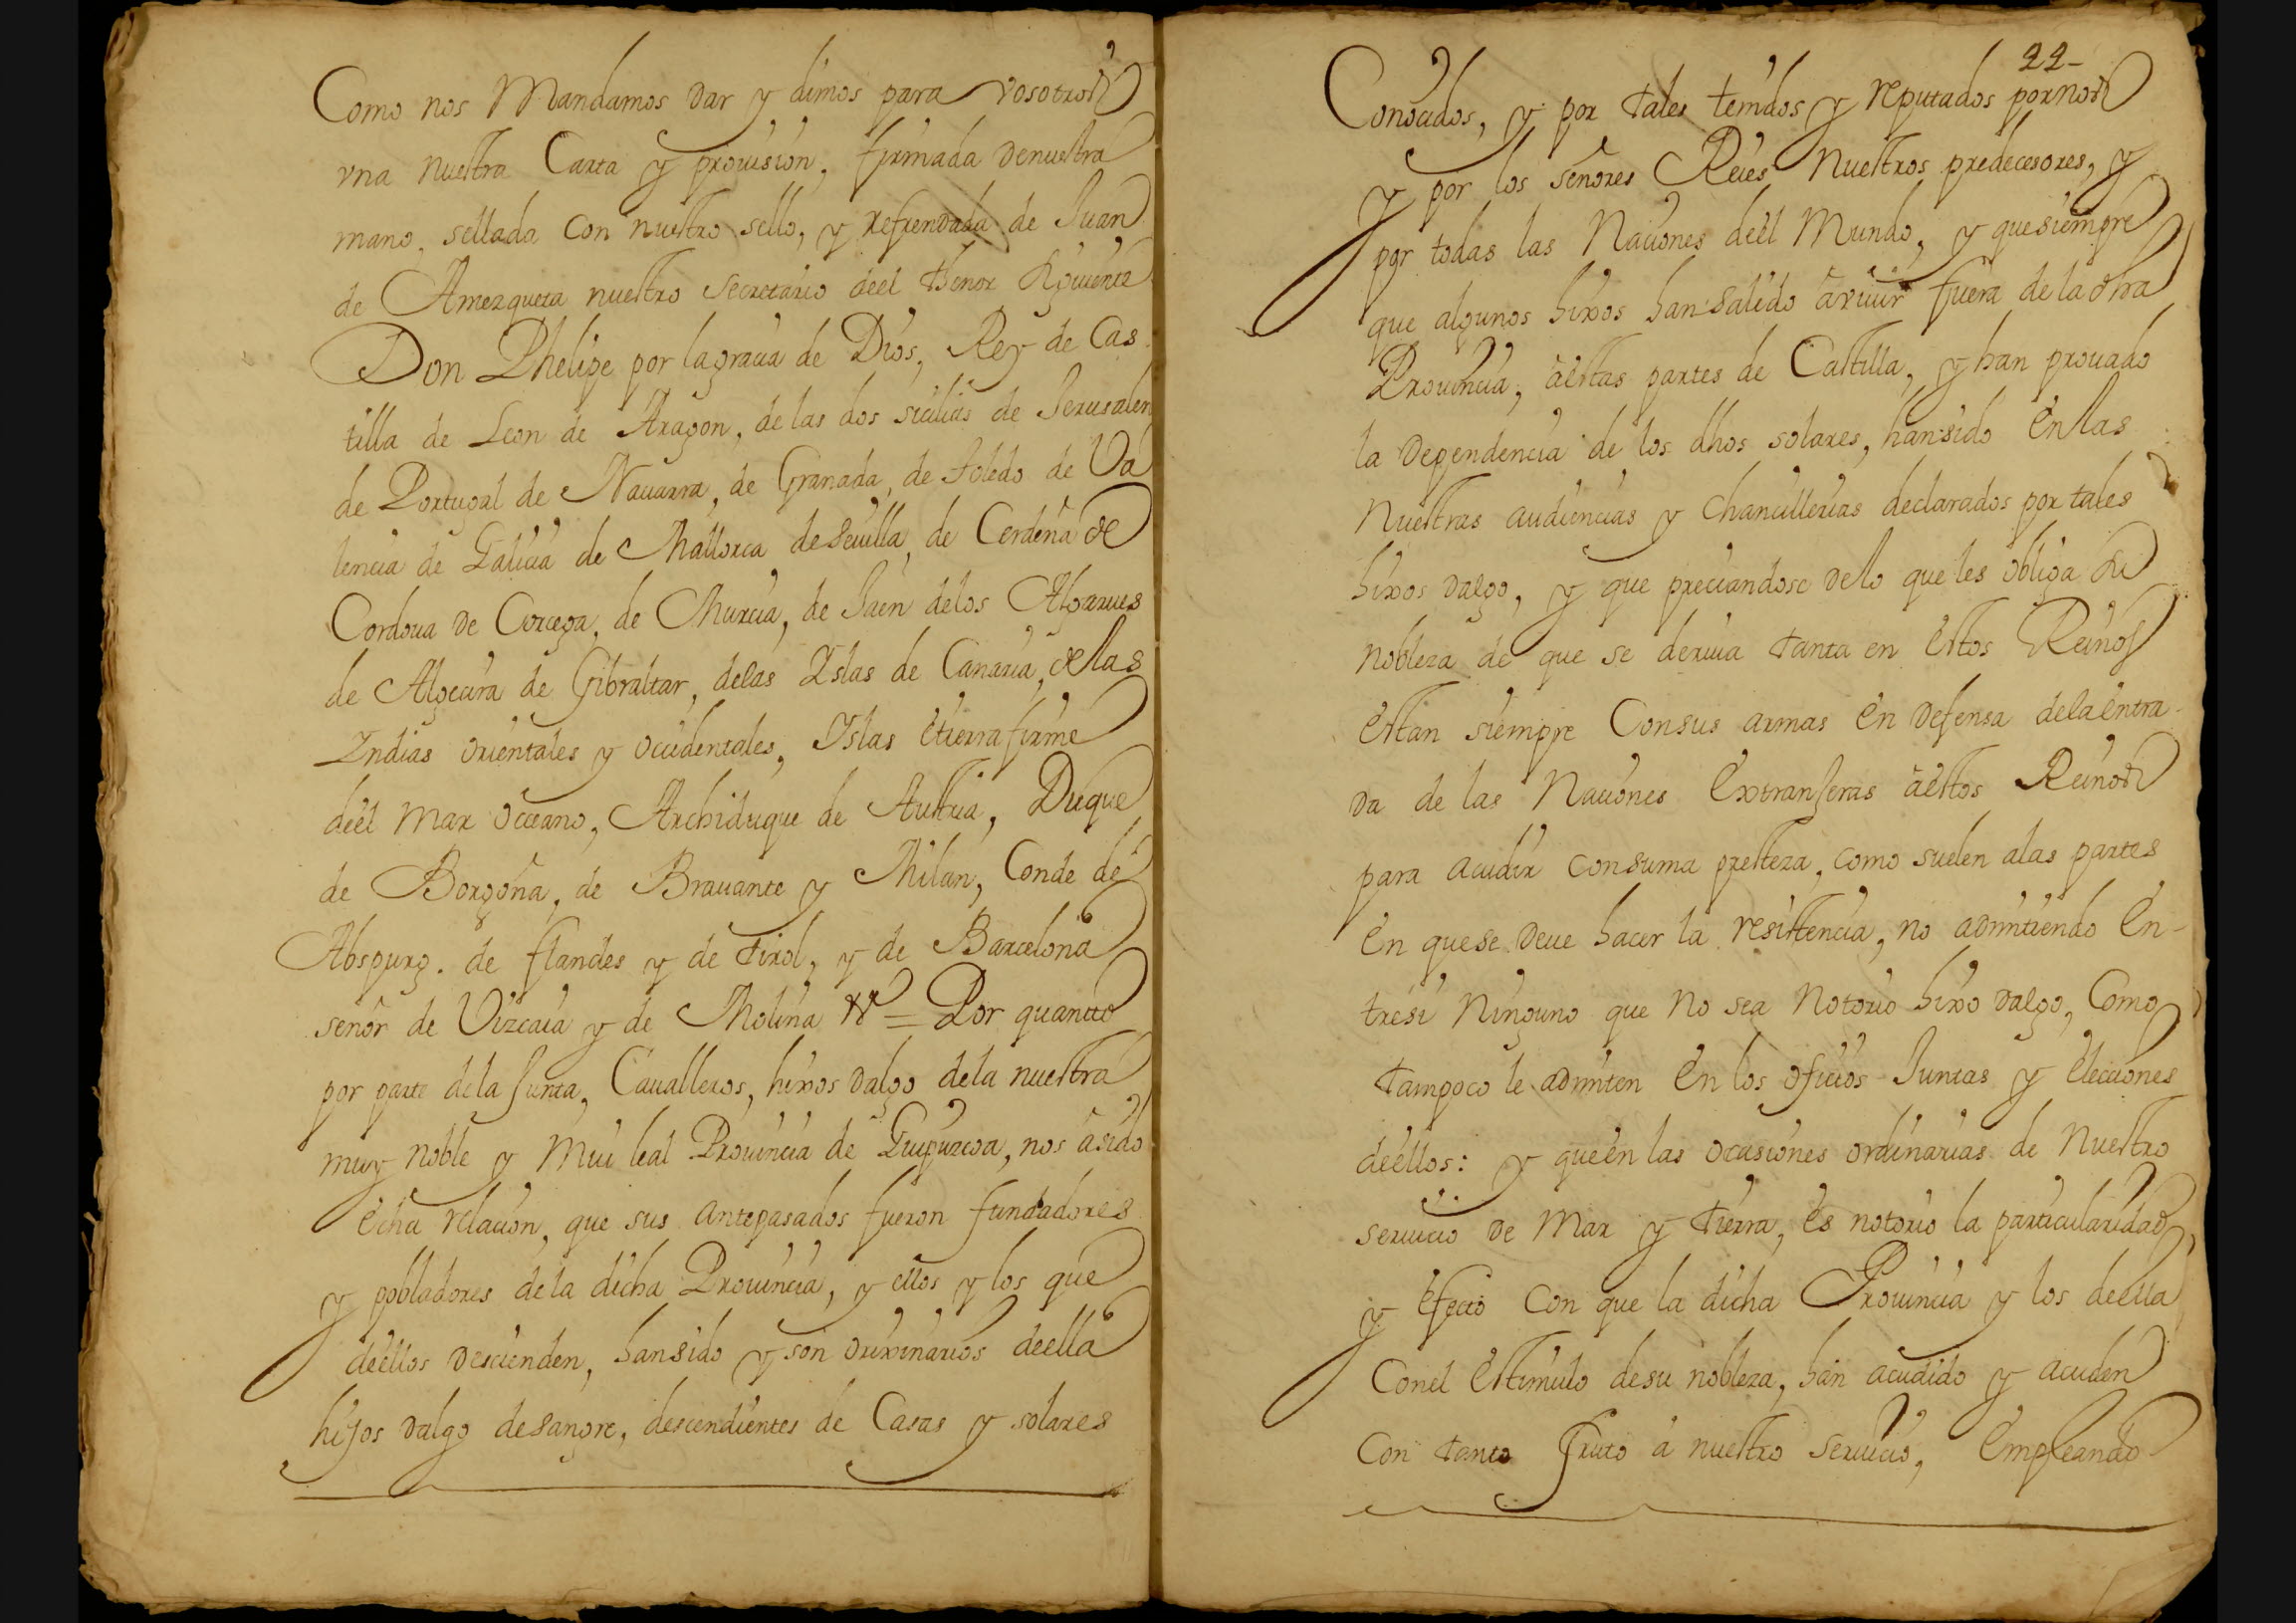 Como nos Mandamos dar y dimos para vosotros
vna nuestra Carta y prouision, firmada denuestra
mano, sellada con nuestro sello, y refrendada de Juan
de Amezqueta nuestro secretario deel thenor siguiente
Don Phelipe por lagracia de Dios, Rey de Cas
tilla de Leon de Aragon, de las dos sicilias de Jerusalen
de Portugal de Nauarra, de Granada, de Toledo de Va
lencia de Galicia de Mallorca de Seuilla, de Cerdeña de
Cordoua de Corcega, de Murcia, de Jaen delos Algarues
de Algecira de Gibraltar, delas Yslas de Canaria, de las
Yndias orientales y occidentales, Yslas etierra firme
deel mar occeano, Archiduque de Austria, Duque
de Borgoña, de Brauante y Milan, Conde de
Abspurg. de flandes y de tirol, y de Barcelona
señor de Vizcaia y de Molina &ª = Por quanto
por parte dela Junta, Caualleros, hixos dalgo dela nuestra
muy noble y Mui leal Prouincia de Guipuzcoa, nos àsido
echa relacion, que sus antepasados fueron fundadores
y pobladores dela dicha Prouincia, y ellos y los que
deellos descienden, hansido y son orixinarios deella
hijos dalgo desangre, descendientes de Casas y solares
22
Conocidos, y por tales tenidos y reputados pornos
y por los señores Reies Nuestros predecesores, y
por todas las Naciones deel Mundo, y quesiempre
que algunos hixos han salido aviuir fuera de la dha
Prouincia, àestas partes de Castilla, y han prouado
la dependencia de los dhos solares, hansido en las
nuestras audiencias y chancillerias declarados por tales
hixos dalgo, y que preciandose delo que les obliga su
nobleza de que se deriua tanta en estos Reinos
estan siempre Consus armas en defensa dela entra
da de las Naciones extranjeras àestos Reinos
para acudir consuma presteza, como suelen alas partes
en quese deue hacer la resistencia, no admitiendo en-
tresi ninguno que no sea notorio hixo dalgo, Como
tampoco le admiten en los oficios Juntas y elecciones
deellos: y queen las ocasiones ordinarias de Nuestro
seruicio de Mar y tierra, es notorio la particularidad
y efecto con que la dicha Prouincia y los deella
Conel estimulo desu nobleza, han acudido y acuden
con tanto fruto à nuestro seruicio, empleando